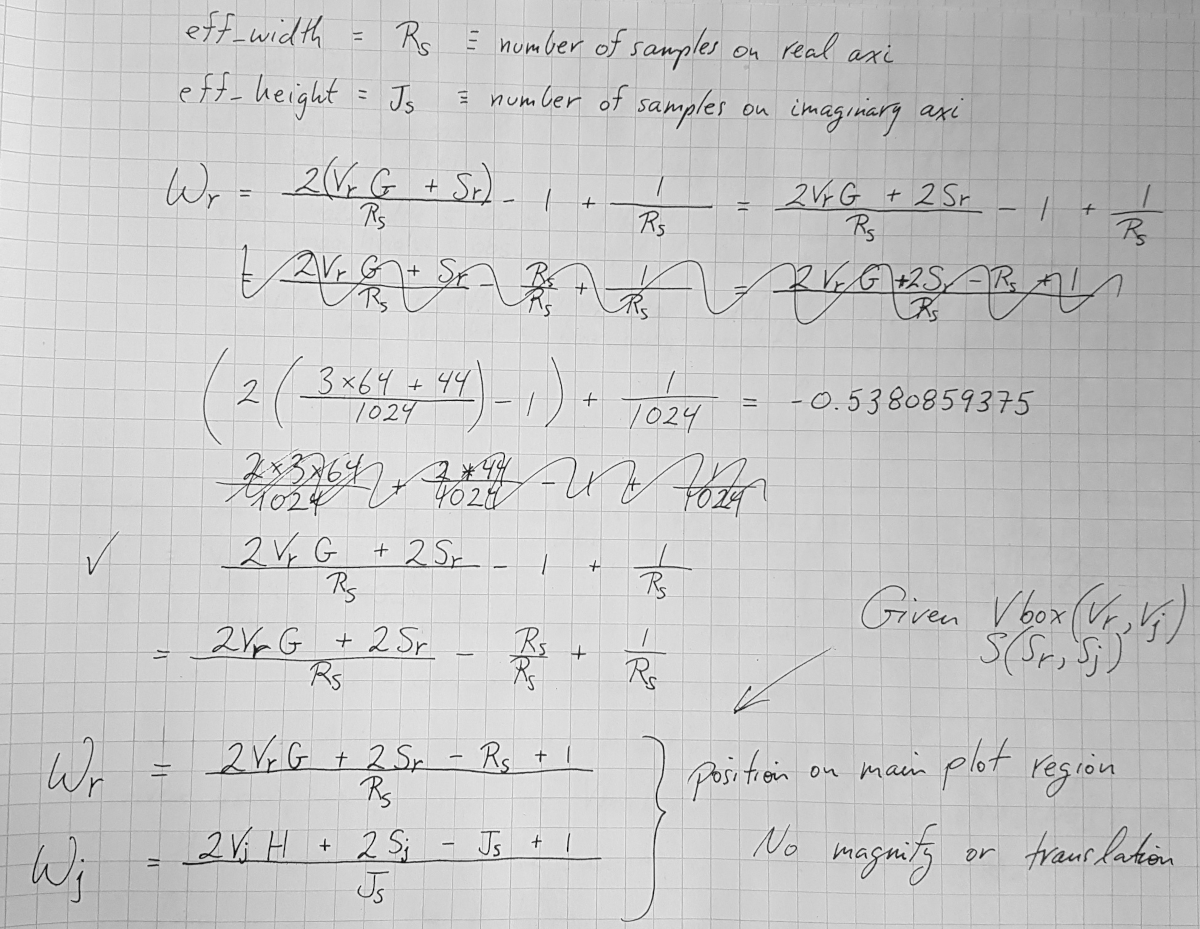 eff_width = Rs ≡ number of samples on real axi
eff_height = Js ≡ number of samples on imaginary axi
Wr = 2(Vr G + Sr)/Rs - 1 + 1/Rs = 2VrG + 2Sr/Rs - 1 + 1/Rs
= 2Vr G + Sr/Rs - Rs/Rs + 1/Rs = 2VrG + 2Sr - Rs + 1/Rs
(2(3×64 + 44/1024) - 1) + 1/1024 = -0.5380859375
2×3×64/1024 + 2*44/1024 - 1 + 1/1024
✓ 2Vr G + 2Sr/Rs - 1 + 1/Rs
Given Vbox(Vr, Vj)
S(Sr, Sj)
= 2VrG + 2Sr/Rs - Rs/Rs + 1/Rs
Wr = 2VrG + 2Sr - Rs + 1/Rs
position on main plot region
Wj = 2Vj H + 2Sj - Js + 1/Js
No magnify or translation